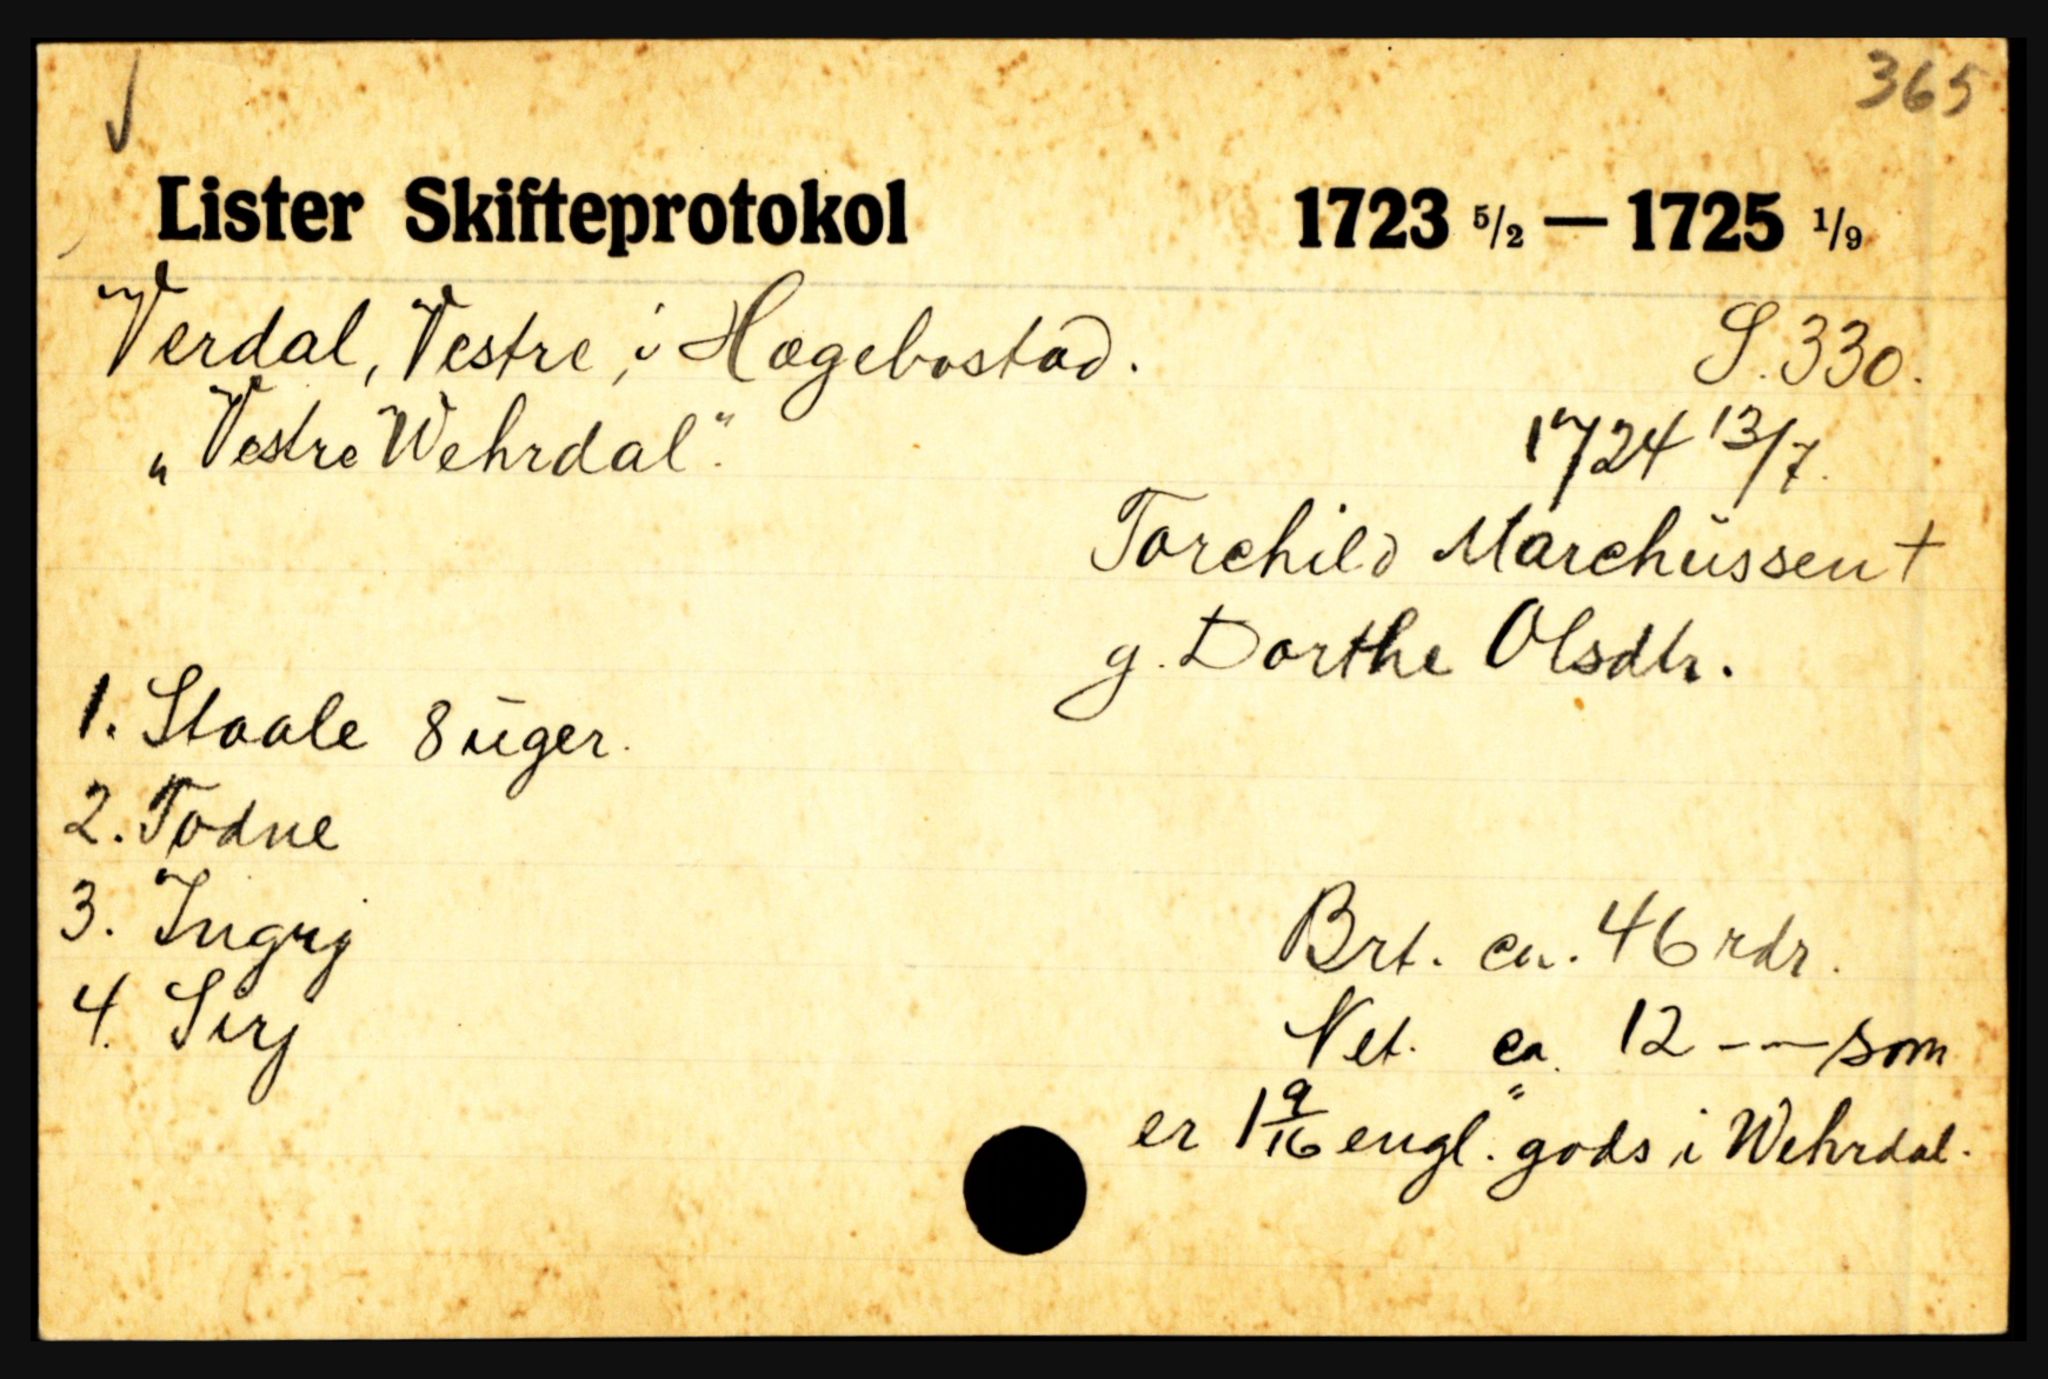 365
Lister Skifteprotokol 1723 5/2 — 1725 1/9
Verdal, Vestre, i Hægebostad. S. 330.
„Vestre Wehrdal“. 1724 13/7.
Torchild Marchussen †
g. Dorthe Olsdtr.
1. Staale 8 uger.
2. Todne
3. Ingrj
4. Sirj
Brt. ca. 46 rdr.
Net. ca. 12 -- — som
er 1 9/16 engl. gods i Wehrdal.